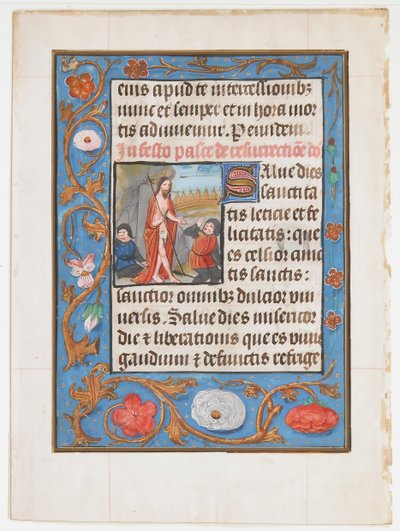 eius apud te intercessionibz
nunc et semper et in hora mor
tis adiuvemur. Per eundem
In festo pasce de resurrectiõe dñi
Salue dies
sanctita
tis leticie et fe
licitatis: que
es celsior cunc
tis sanctis:
sanctior omnibz dulcior uni
uersis. Salue dies misericor
die et liberationis que es viuis
gaudium et defunctis refrige